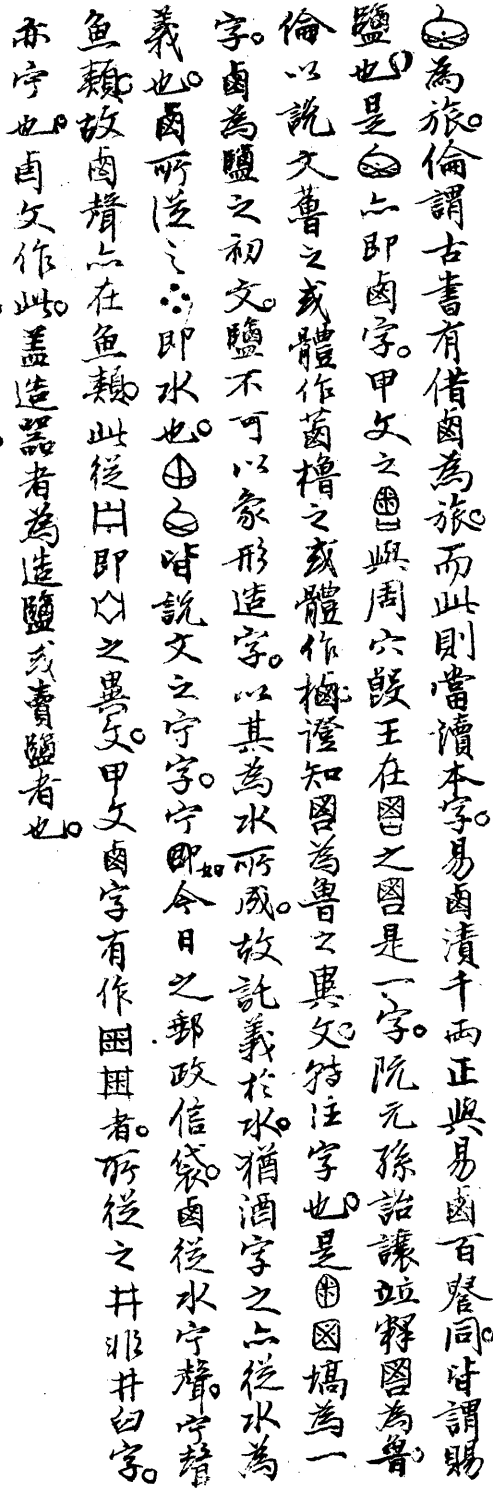 為旅。倫謂古書有借鹵為旅。而此則當讀本字。易鹵漬千兩正與易鹵百𤲞同。皆謂賜
鹽也。是亦即鹵字。甲文之與周穴𣪘王在之是一字。阮元孫詒讓竝釋為魯。
倫以說文蓾之或體作䔞櫓之或體作樐。證知為魯之異文。詩注字也。是塙為一
字。鹵為鹽之初文。鹽不可以象形造字。以其為水所成。故託義於水。猶酒字之亦從水為
義也。鹵所從之即水也。皆說文之宁字。宁即如今日之郵政信袋。鹵從水宁聲。宁聲
魚類。故鹵聲亦在魚類。此從即之異文。甲文鹵字有作者。所從之井非井臼字。
亦宁也。文作此。葢造器者為造鹽或賣鹽者也。